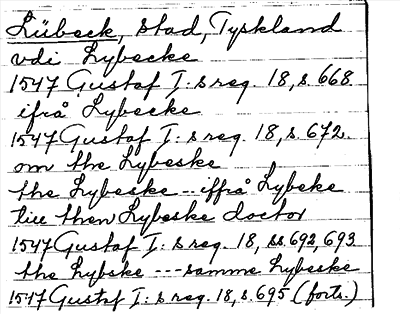 Lübeck, stad, Tyskland
vdi Lybecke
1547 Gustaf I:s reg. 18, s. 668
ifrå Lybecke
1547 Gustaf I:s reg. 18, s. 672.
om the Lybeske
the Lybeske -- iffrå Lybeke
till then Lybeske doctor
1547 Gustaf I:s reg. 18, ss. 692, 693
the Lybske --- samme Lybeske
1547 Gustaf I:s reg. 18, s. 695 (forts.)